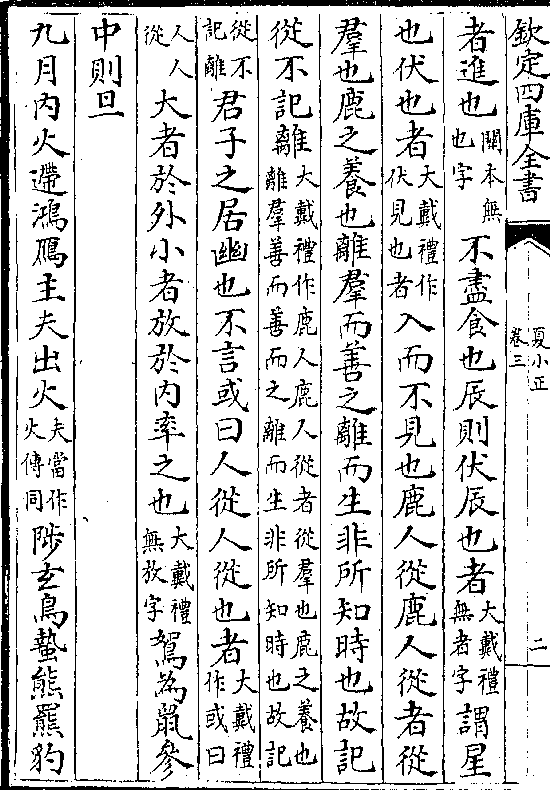 欽定四庫全書
夏小正
卷三
二
者進也關本無也字不盡食也辰則伏辰也者大戴禮無者字謂星
也伏也者大戴禮作伏見也者入而不見也鹿人從鹿人從者從
羣也鹿之養也離羣而善之離而生非所知時也故記
從不記離大戴禮作鹿人鹿人從者從羣也鹿之養也離羣善而善而之離而生非所知時也故記
從不記離君子之居幽也不言或曰人從人從也者大戴禮作或曰
人人從大者於外小者放於内率之也大戴禮無放字鴽為鼠參
中則旦
九月内火遰鴻鴈主夫出火夫當作火傳同陟玄鳥蟄熊羆豹